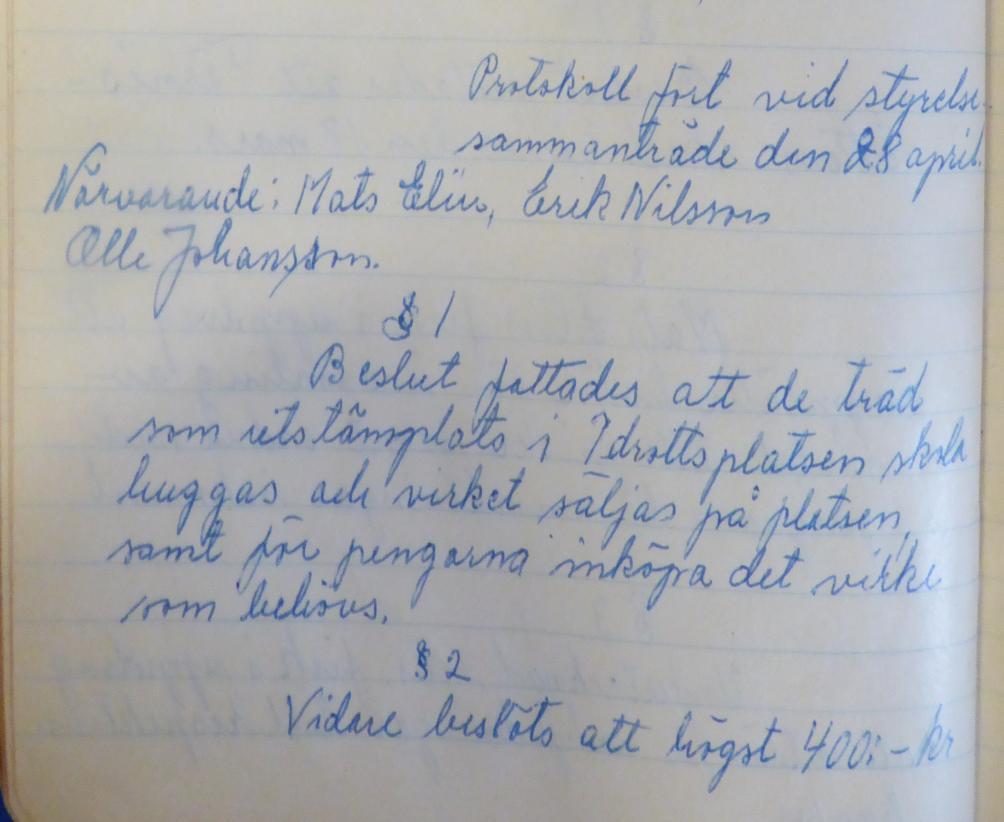 Protokoll fört vid styrelse-
sammanträde den 28 april.
Närvarande: Mats Elin, Erik Nilsson
Olle Johansson.
§ 1
Beslut fattades att de träd
som utstämplats i Idrottsplatsen skola
huggas och virket säljas på platsen,
samt för pengarna inköpa det virke
som behövs.
§ 2
Vidare beslöts att högst 400:- kr